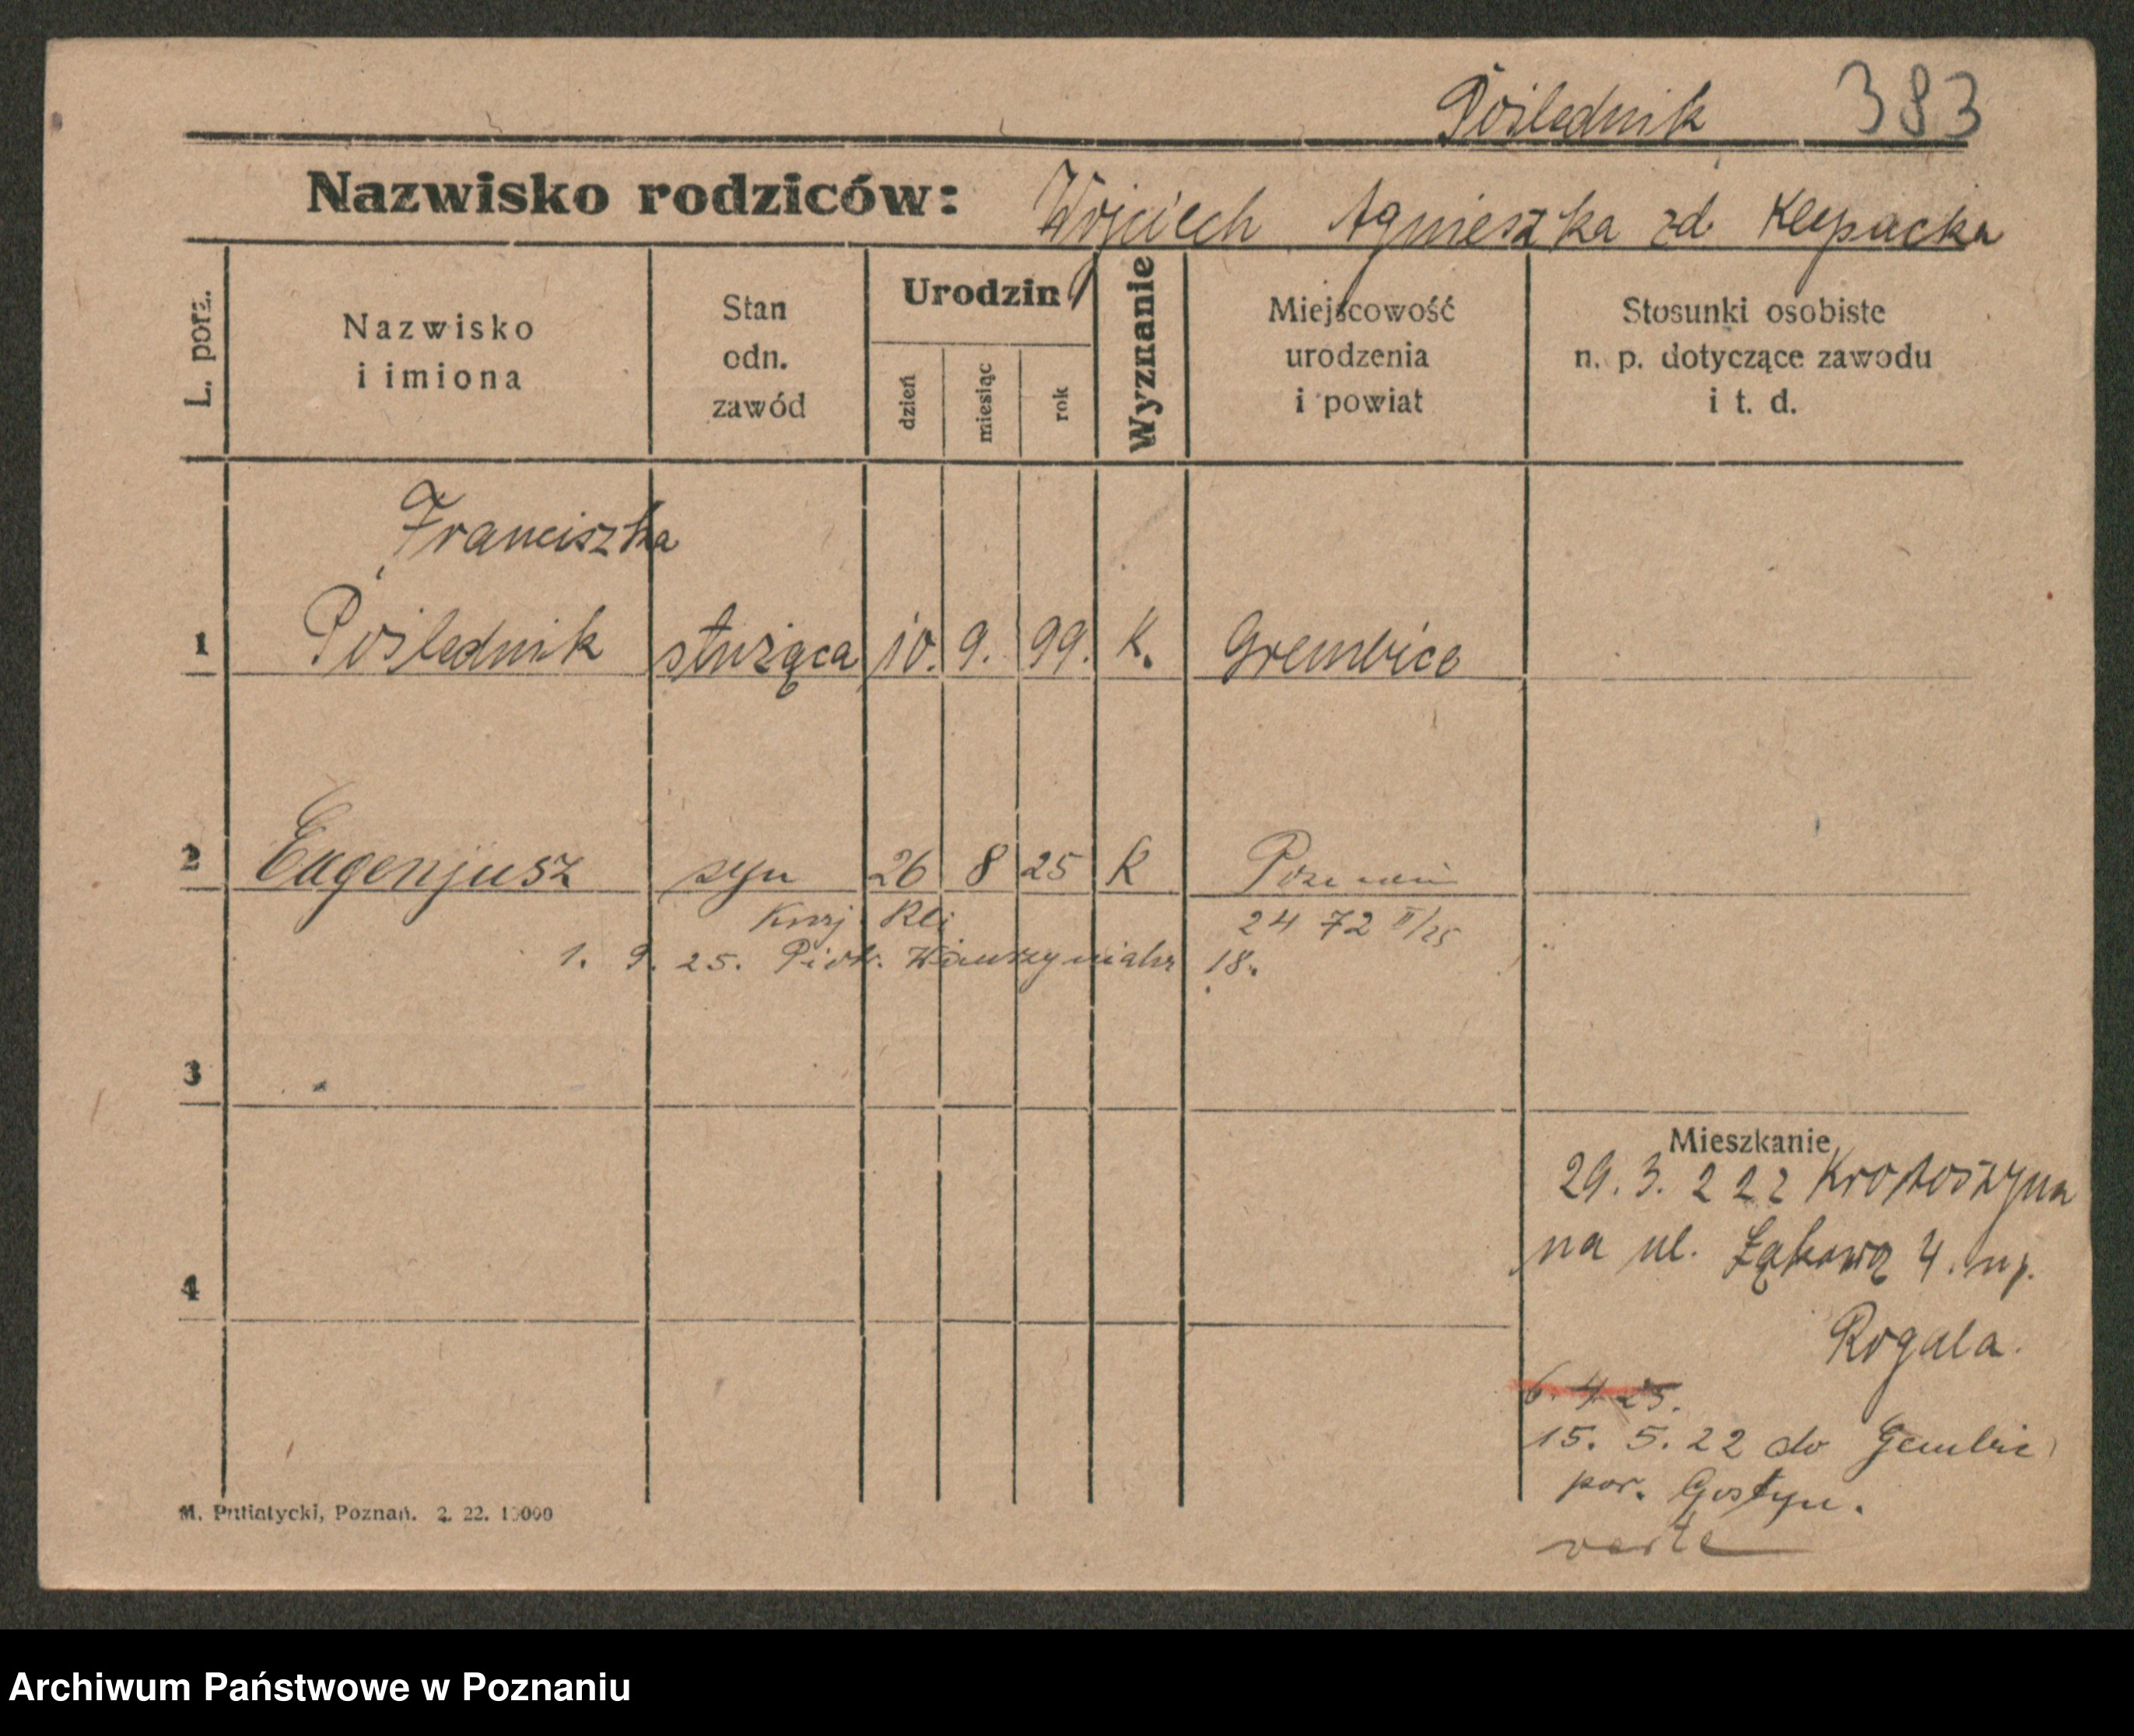 Poślednik 383
Nazwisko rodziców: Wojciech Agnieszka zd. Klepacka
L. porz.
Nazwisko
i imiona
Stan
odn.
zawód
Urodzin
dzień
miesiąc
rok
Wyznanie
Miejscowość
urodzenia
i powiat
Stosunki osobiste
n. p. dotyczące zawodu
i t. d.
Franciszka
1 Poślednik służąca 10. 9. 99. K. Grembice
2 Eugenjusz syn 26 8 25 K Poznań
24 72 II/25
1. 9. 25. Piotr. 18.
3
Mieszkanie
29. 3. 22 z Krotoszyna
na ul. Łąkową 4. np.
4
Rogala.
6. 4. 25.
15. 5. 22 do Gembic
pow. Gostyn.
verte
M. Putiatycki, Poznań. 2. 22. 10000
Archiwum Państwowe w Poznaniu